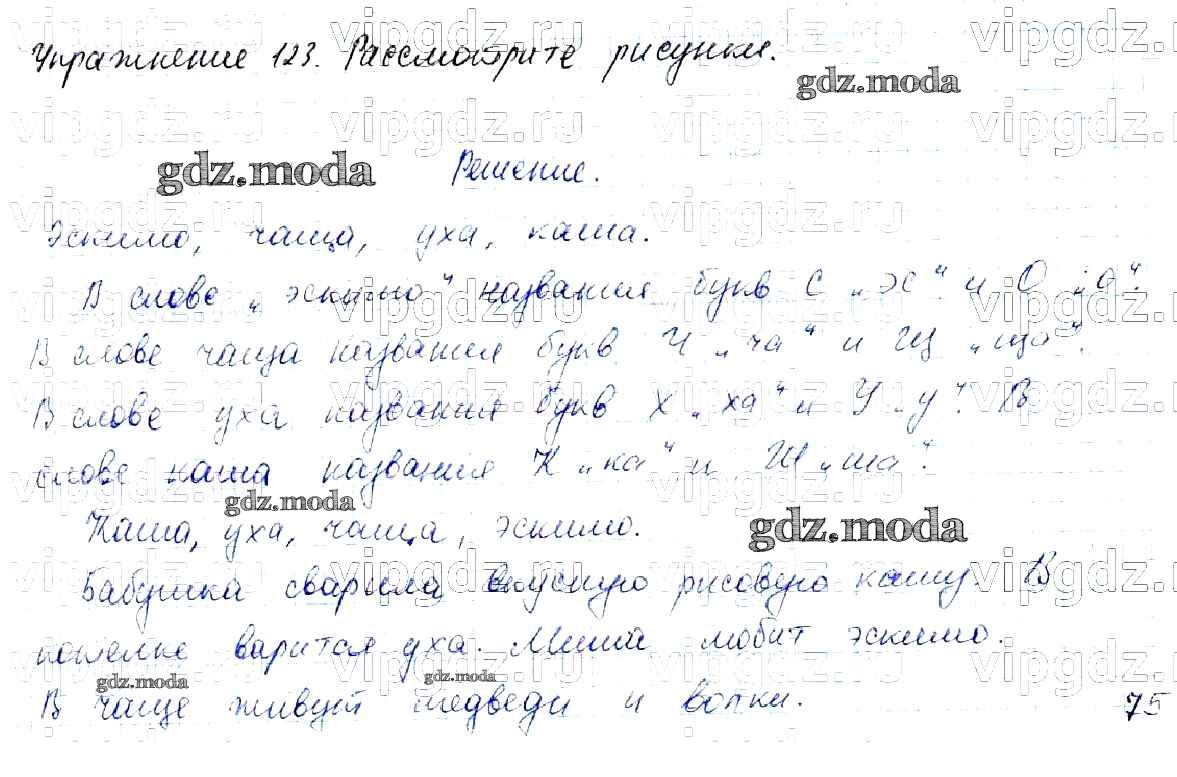 Упражнение 123. Рассмотрите рисунки.
gdz.moda
gdz.moda Решение.
Эскимо, чаща, уха, каша.
В слове „эскимо" названия букв С „эс" и О „о".
В слове чаща названия букв Ч „ча" и Щ „ща".
В слове уха названия букв Х „ха" и У „у". В
слове каша названия К „ка" и Ш „ша".
gdz.moda
Каша, уха, чаща, эскимо.
gdz.moda
Бабушка сварила вкусную рисовую кашу. В
котелке варится уха. Миша любит эскимо.
gdz.moda gdz.moda
В чаще живут медведи и волки. 75
vipgdz.ru vipgdz.ru vipgdz.ru vipgdz.ru